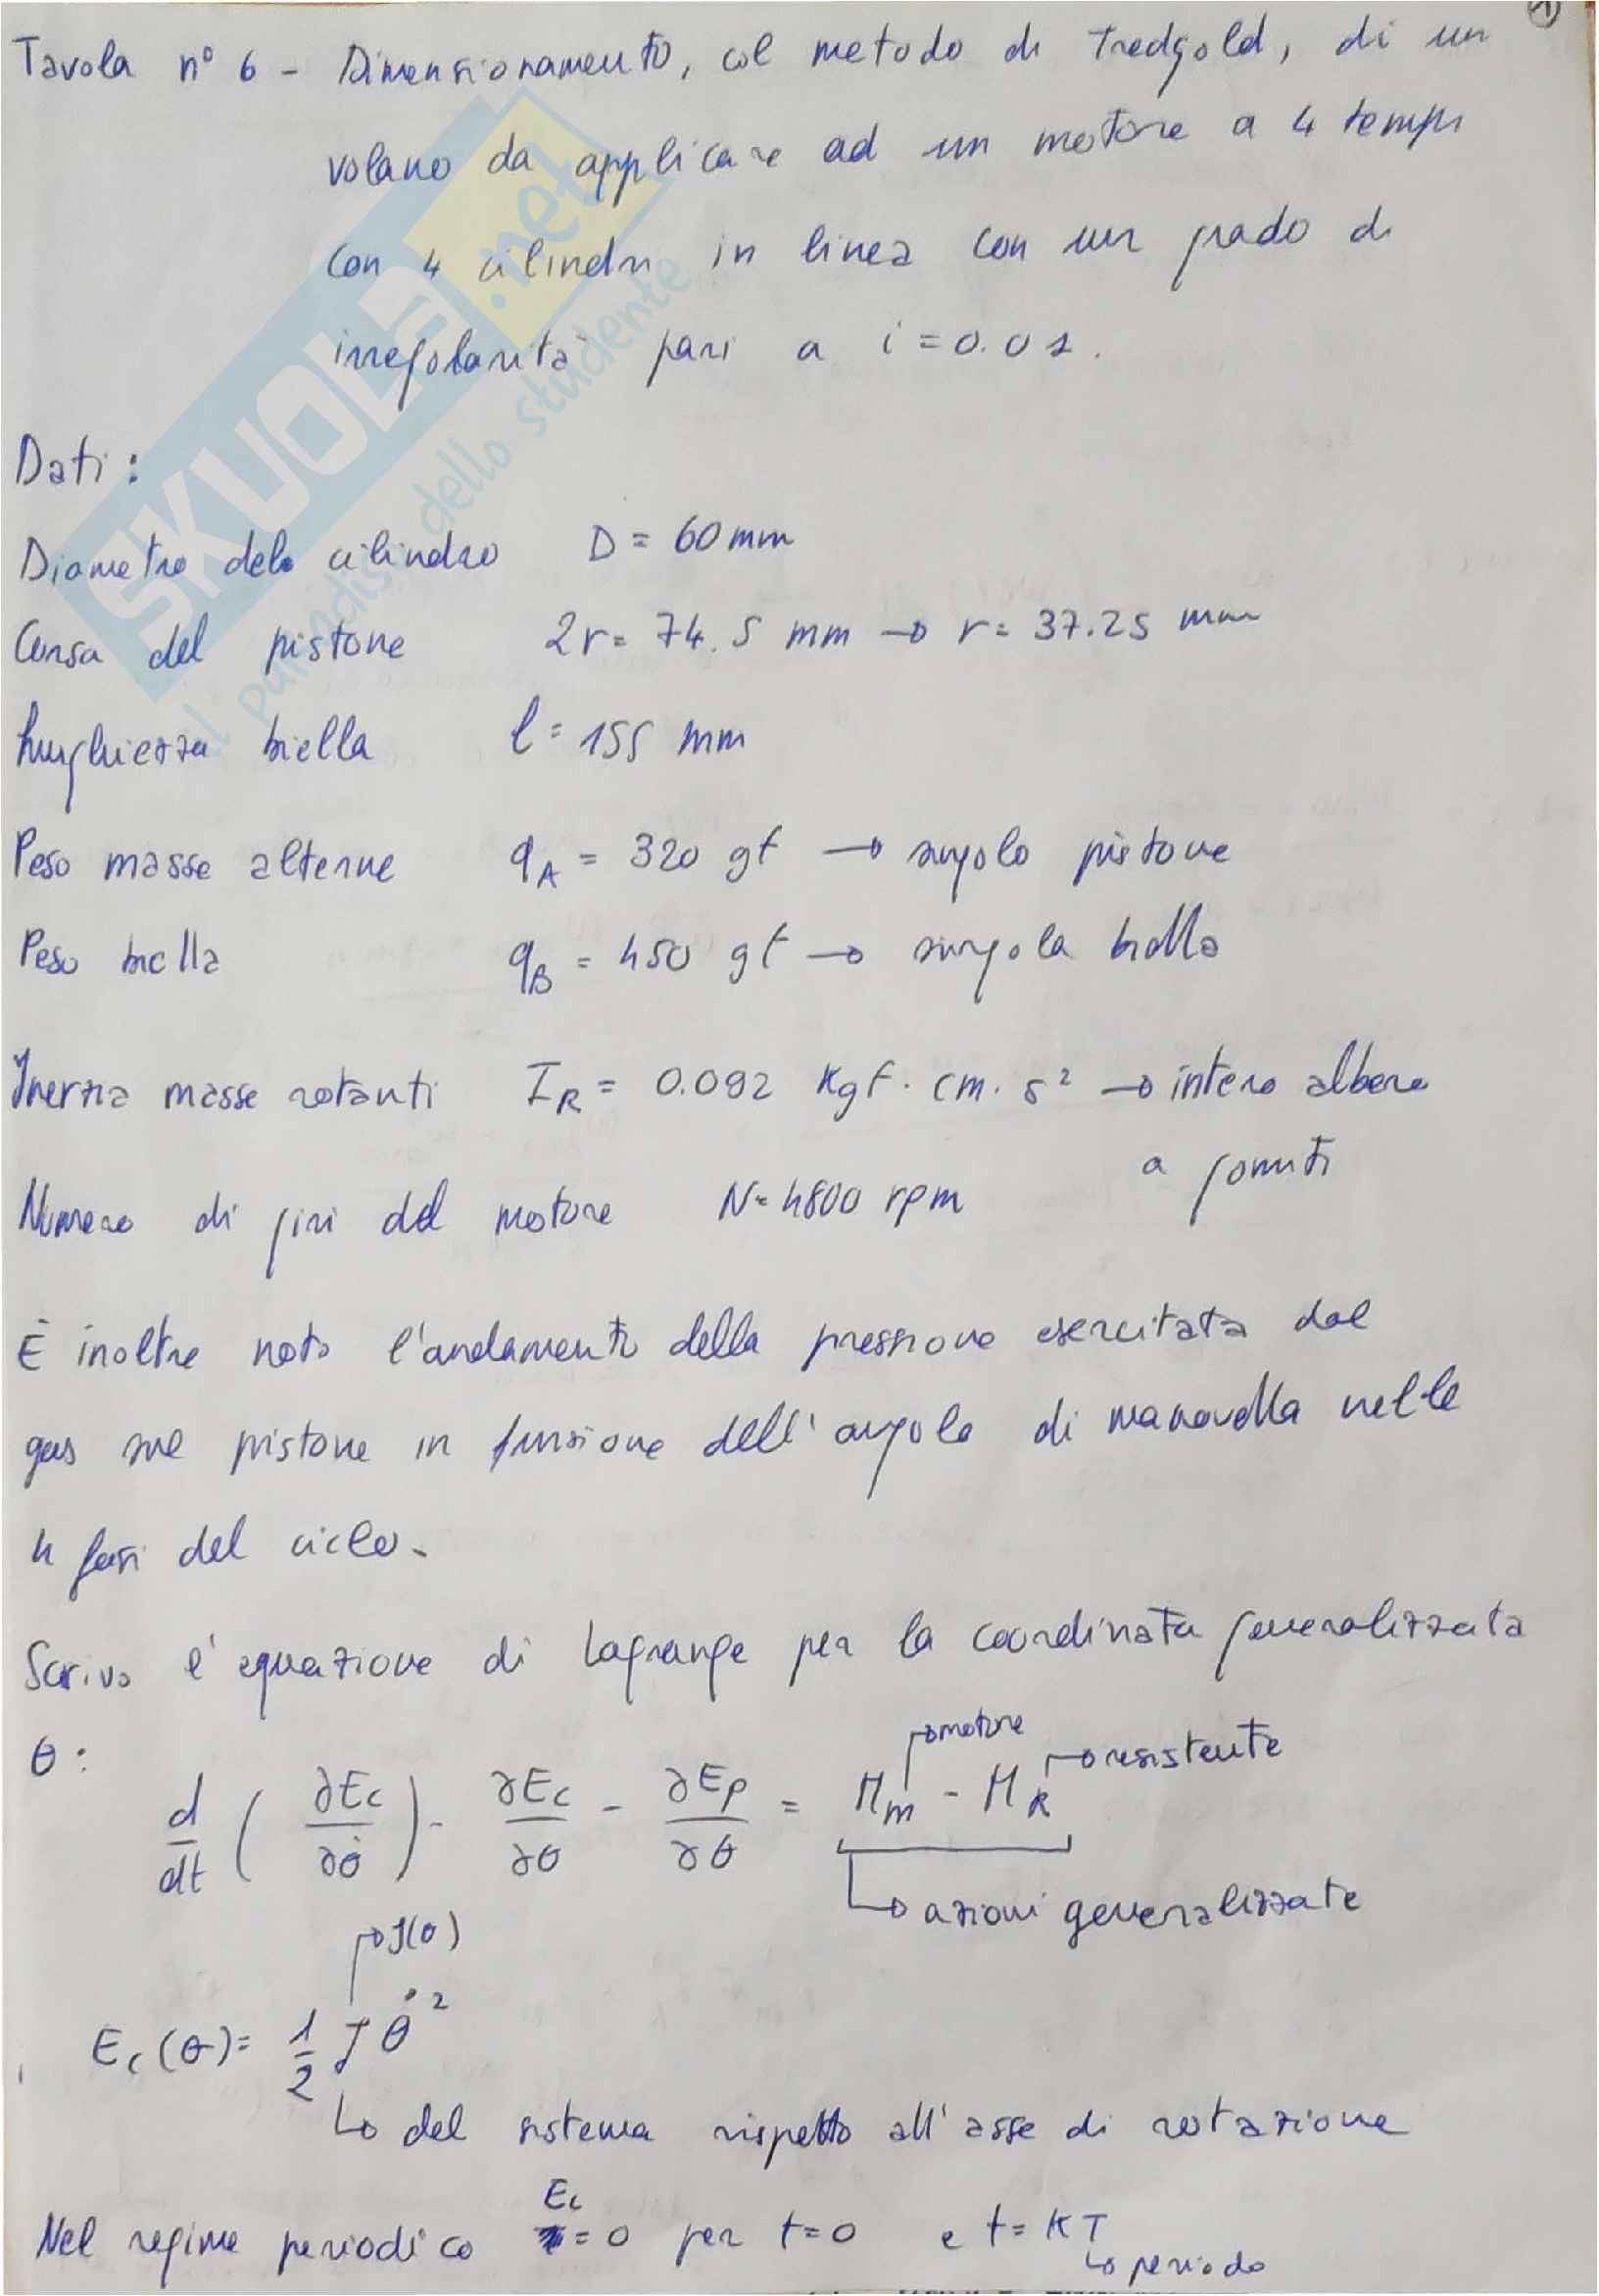 1
Tavola n° 6 - Dimensionamento, col metodo di Tredgold, di un
volano da applicare ad un motore a 4 tempi
con 4 cilindri in linea con un grado di
irregolarità pari a i = 0.01.
Dati:
Diametro del cilindro D = 60 mm
Corsa del pistone 2r = 74.5 mm → r = 37.25 mm
Lunghezza biella l = 155 mm
Peso masse alterne qA = 320 gf → singolo pistone
Peso biella qB = 450 gf → singola biella
Inerzia masse rotanti IR = 0.092 Kgf · cm · s² → intero albero
a gomiti
Numero di giri del motore N = 4800 rpm
È inoltre noto l'andamento della pressione esercitata dal
gas sul pistone in funzione dell'angolo di manovella nelle
4 fasi del ciclo.
Scrivo l'equazione di Lagrange per la coordinata generalizzata
θ:
→ motore → resistente
d/dt (∂Ec/∂θ̇) - ∂Ec/∂θ - ∂Ep/∂θ = Mm - MR
→ azioni generalizzate
→ J(θ)
Ec(θ) = 1/2 J θ̇²
→ del sistema rispetto all'asse di rotazione
Nel regime periodico Ec = 0 per t = 0 e t = KT
→ periodo
SKUOLA.net
il paradiso dello studente